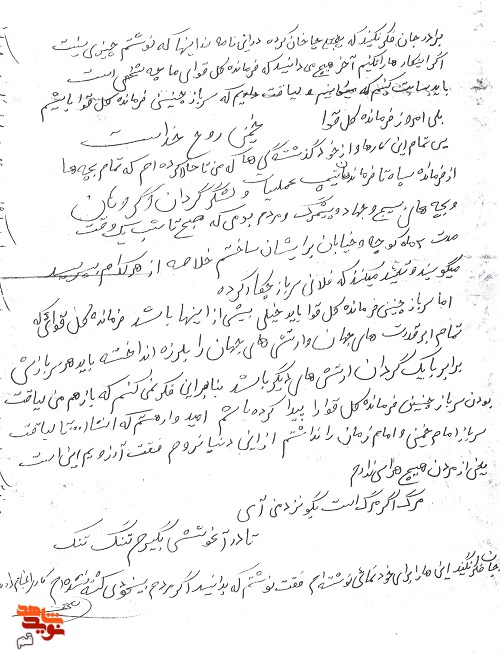 برادر جان فکر نکنید که بسیجی جان کرده در این نامه نه اینها که نوشتم چیزی نیست
اگر اینکار ها را نکنیم آخر هیچ می دانید که فرمانده کل قوای ما چه شخصی است
باید ثابت کنیم که میتوانیم و لیاقت داریم که سرباز چنینی فرمانده کل قوا باشیم
بلی امروز فرمانده کل قوا
خمینی روح خداست
پس تمام این کارها و از خود گذشتگی ها که من تا حالا کرده ام که تمام بچه ها
از فرمانده سپاه تا فرماندهان تیپ عملیات و لشگر گردان اگر و نان
و بچه های بسیج و جهاد و پیشمرگ و مردم بومی که صبح تا شب یک وقت
مدت ماه کوچه و خیابان برایشان ساختم خلاصه از هر کدام بپرسید
میگویند و تائید میکنند که فلانی سرباز چکار کرده
اما سرباز چنینی فرمانده کل قوا باید خیلی بیشتر از اینها باشد فرمانده کل قوائی که
تمام ابر قدرت های جهان و ارتش های جهان را بلرزه انداخته باید هر سربازش
برابر با یک گردان ارتش های دیگر باشد بنابراین فکر نمی کنم که باز هم من لیاقت
بودن سرباز چنینی فرمانده کل قوا را پیدا کرده باشم امیدوار هستم که انشاا... تا لیاقت
سرباز امام خمینی و امام زمان را نداشتم از این دنیا نروم فقط آرزویم این است
یعنی از مردن هیچ هراسی ندارم
مرگ اگر مرگ است بگو نزد من آی
تا در آغوشش بگیرم تنگ تنگ
فکر نکنید این ها را برای خودنمائی نوشته ام فقط نوشتم که بدانید اگر مردم بیخودی کشته نشده ام کار را انجام داده
شاهد
نوید